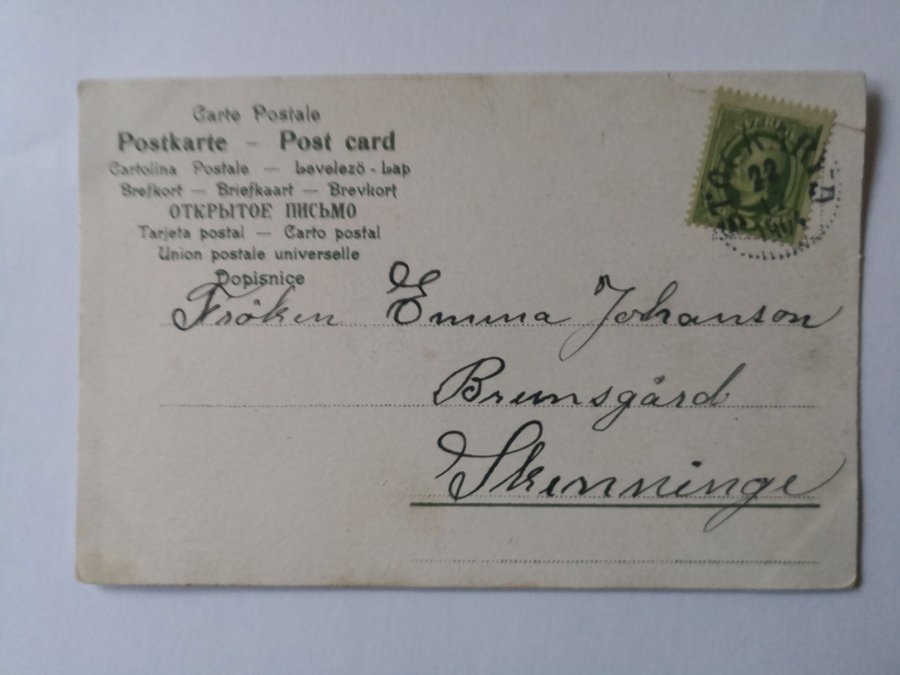 Carte Postale
Postkarte – Post card
Cartolina Postale — Levelező-Lap
Brefkort — Briefkaart — Brevkort
ОТКРЫТОЕ ПИСЬМО
Tarjeta postal — Carto postal
Union postale universelle
Dopisnice
22
Fröken Emma Johanson
Brunsgård
Skenninge